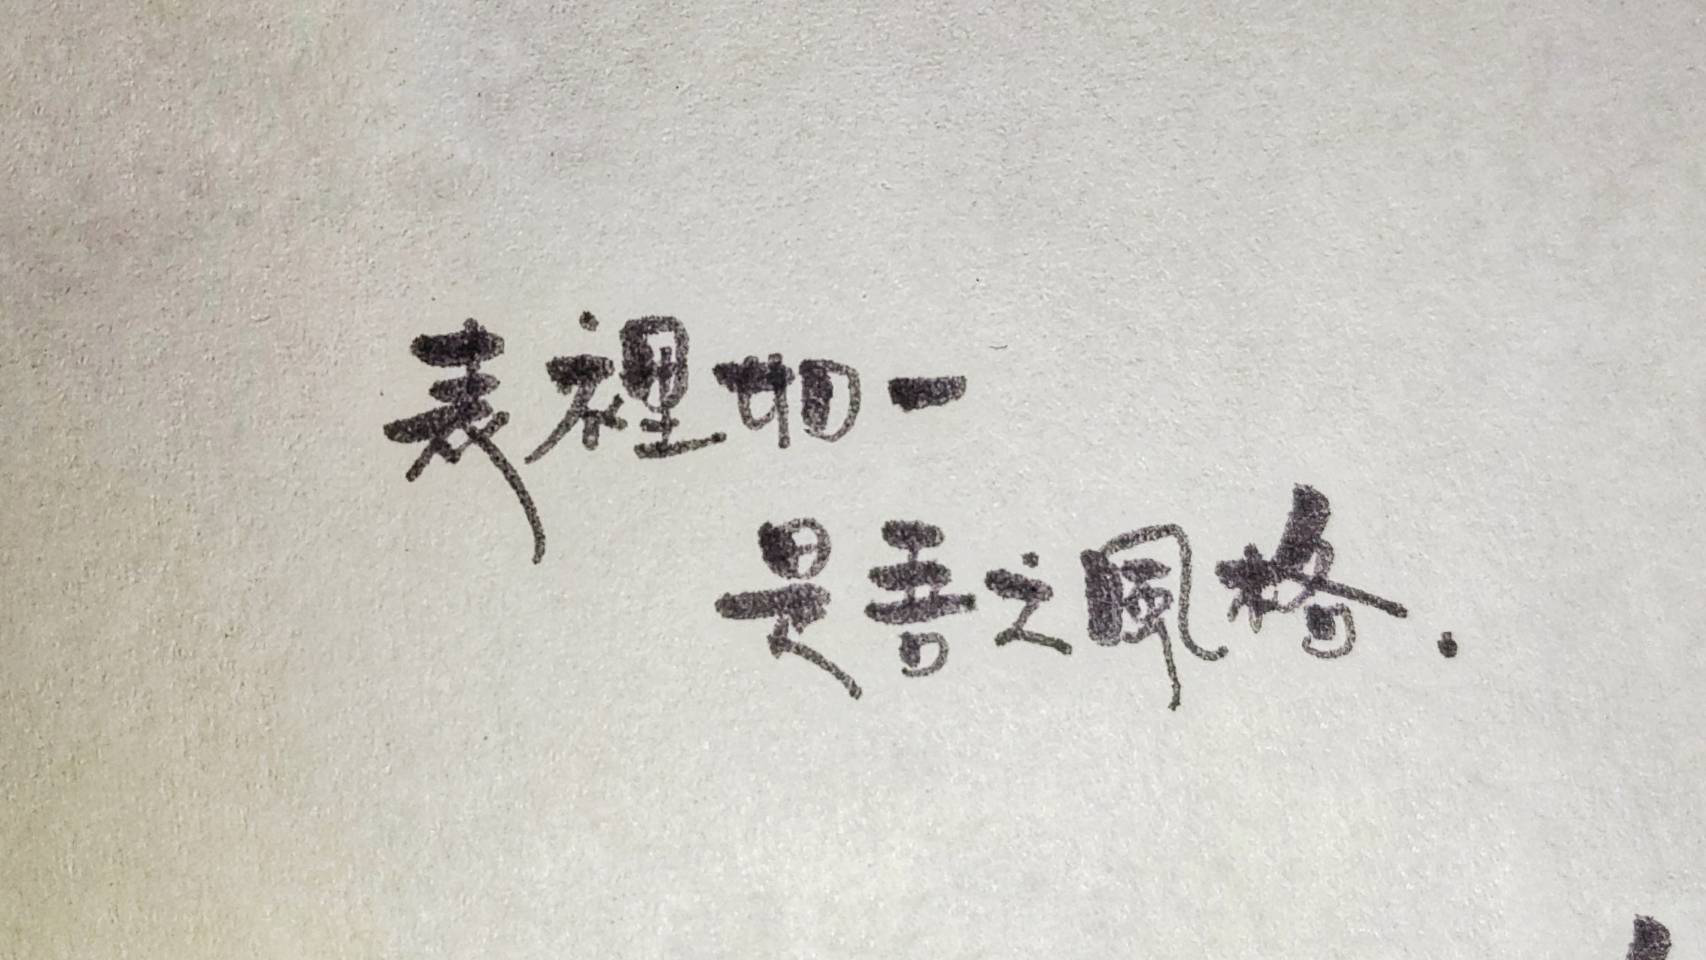 表裡如一
是吾之風格.